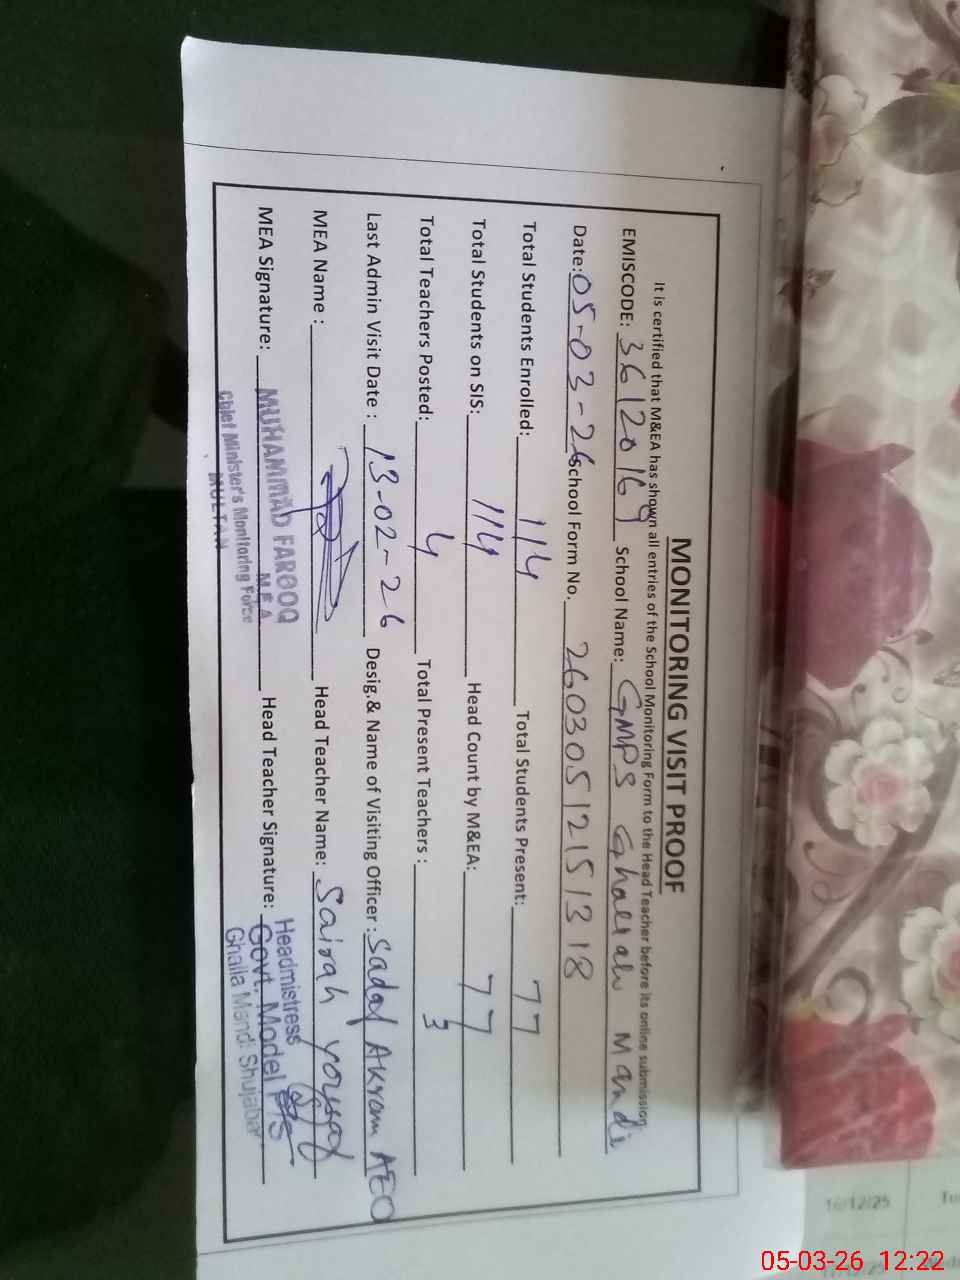 MONITORING VISIT PROOF
It is certified that M&EA has shown all entries of the School Monitoring Form to the Head Teacher before its online submission
EMISCODE: 36120169 School Name: GMPS Ghallah Mandi
Date: 05-03-26 School Form No. 26030512151318
Total Students Enrolled: 114 Total Students Present: 77
Total Students on SIS: 114 Head Count by M&EA: 77
Total Teachers Posted: 4 Total Present Teachers : 3
Last Admin Visit Date : 13-02-26 Desig.& Name of Visiting Officer : Sadaf Akram AEO
MEA Name : Head Teacher Name: Sairah Yousaf
MEA Signature: MUHAMMAD FAROOQ Head Teacher Signature: Headmistress
M E A Govt. Model P/S
Chief Minister's Monitoring Force Ghalla Mandi Shujabad
MULTAN
16/12/25 Tu
05-03-26 12:22